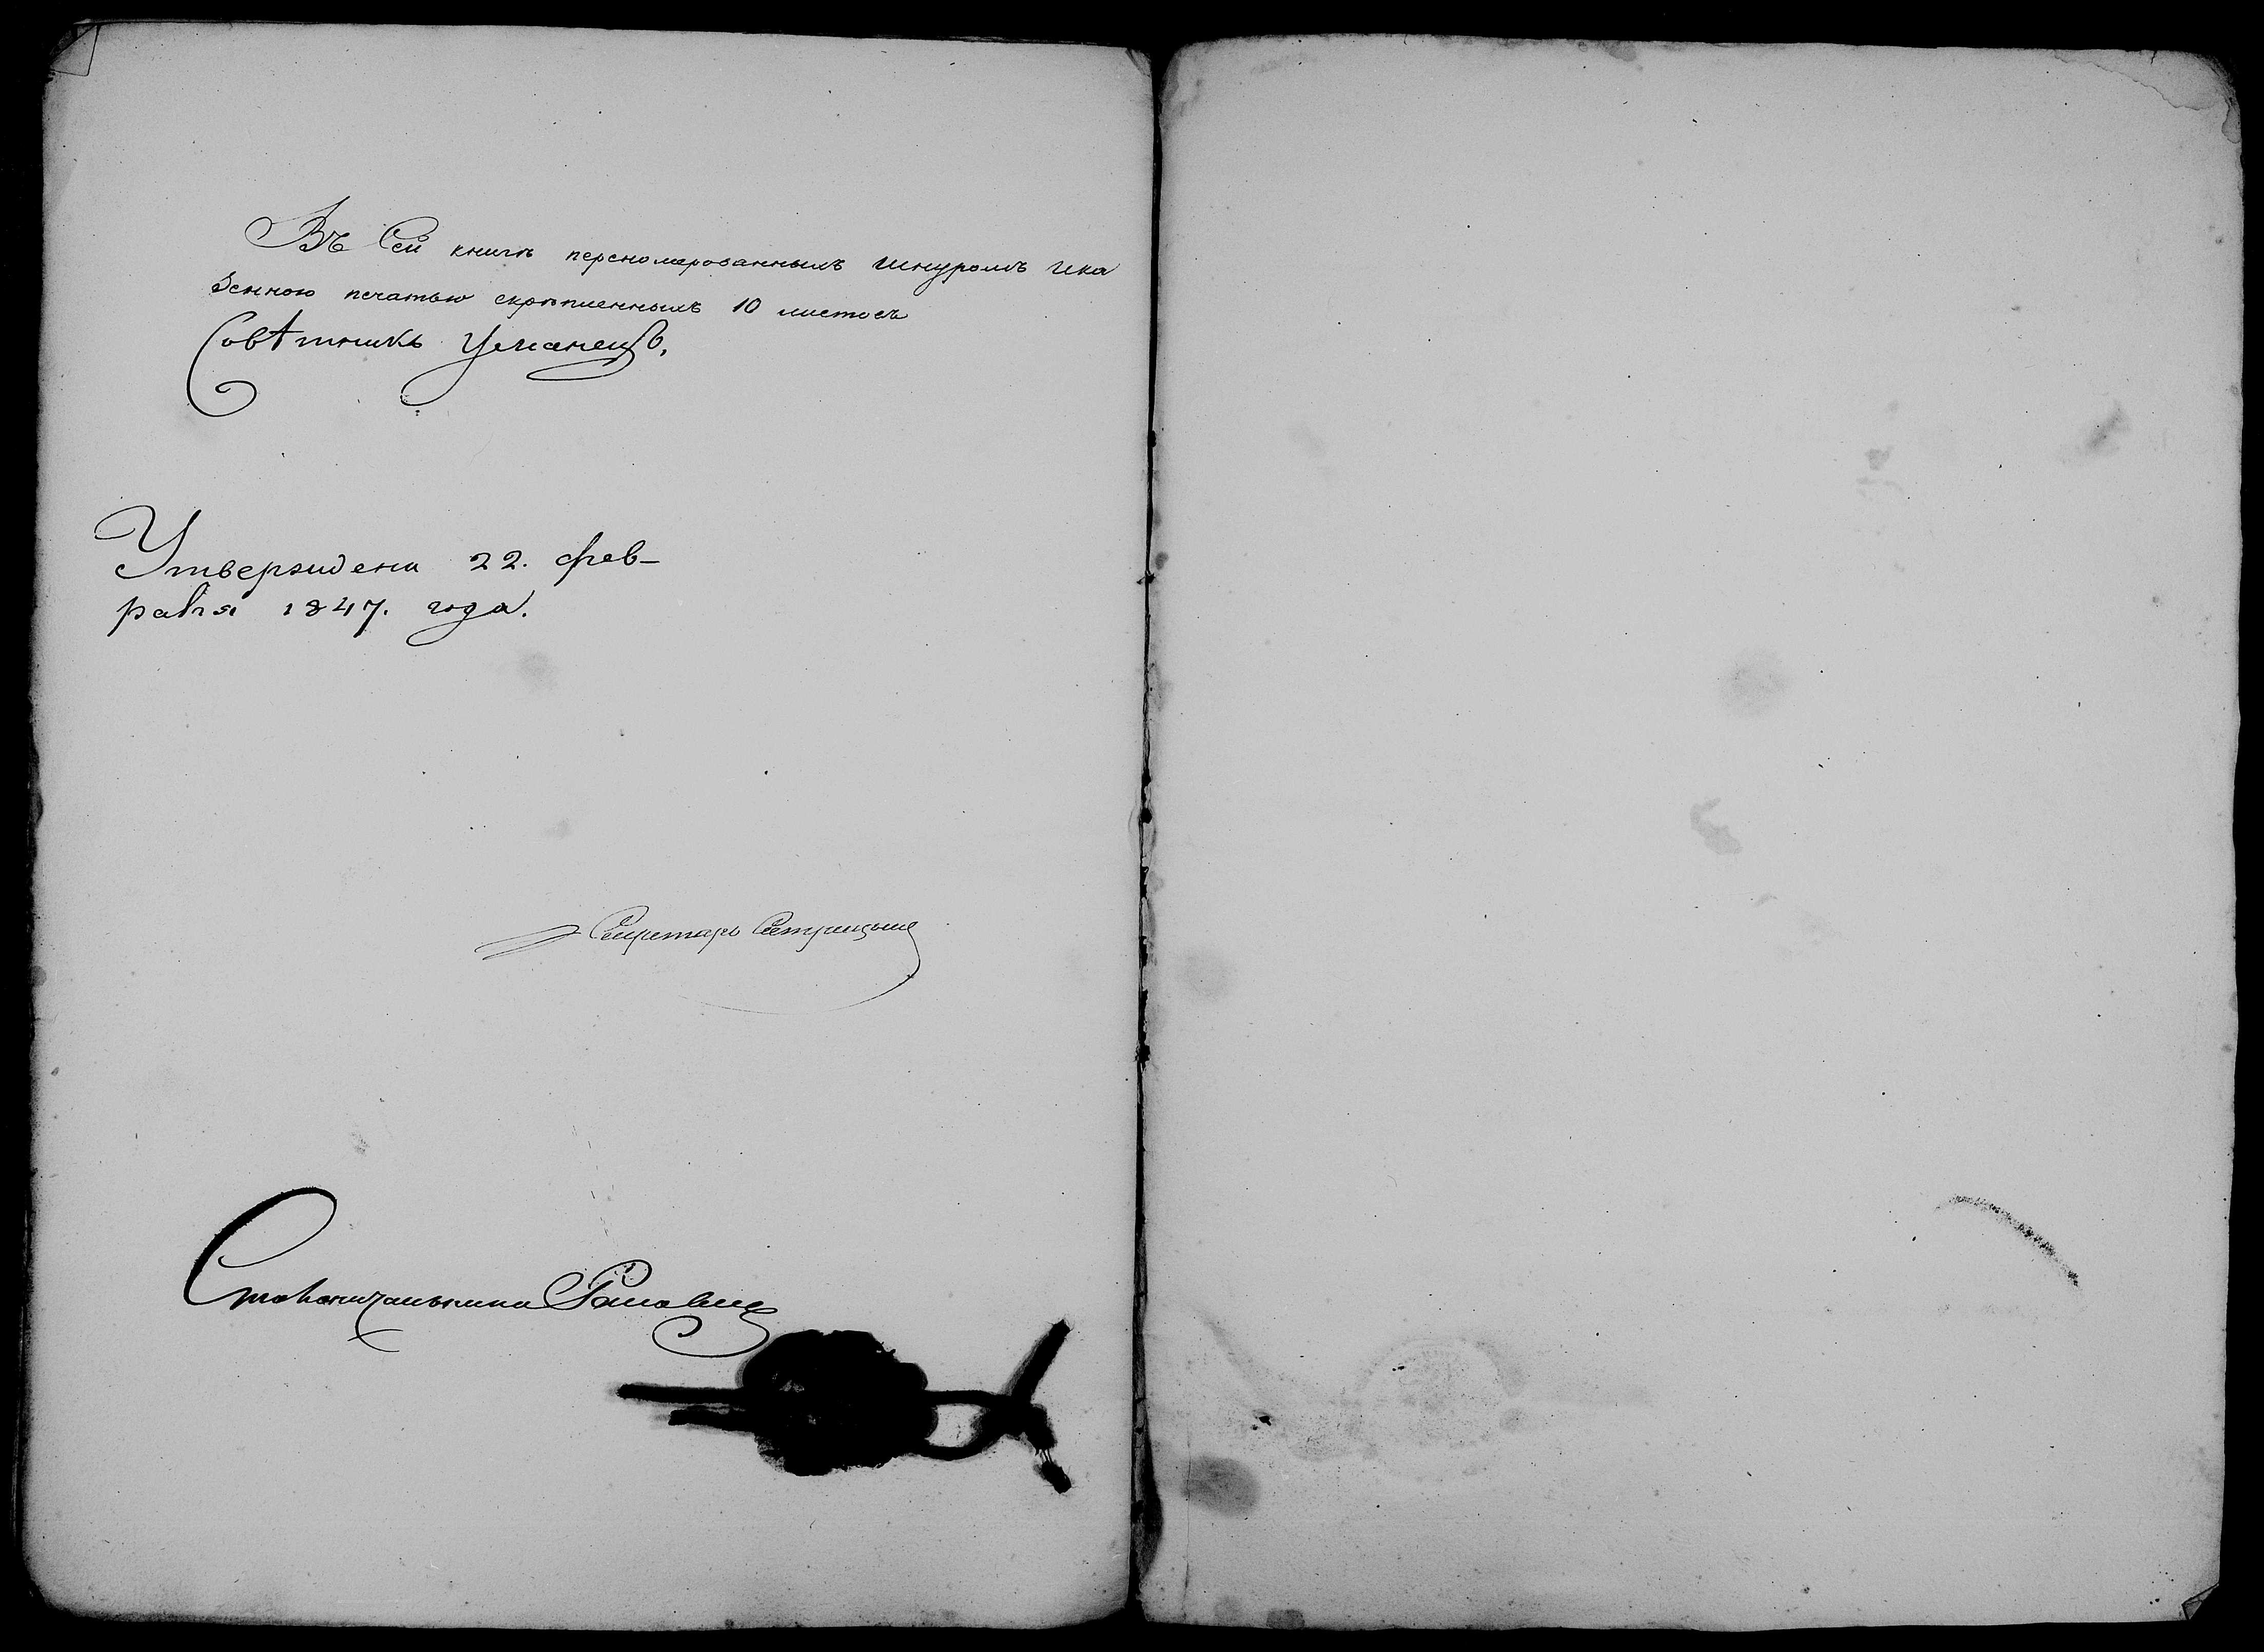 Въ Сей книгѣ перенумерованныхъ шнуромъ ика
зенною печатью скрѣпленныхъ 10 листовъ
Совѣтникъ Уманецъ,
Утверждена 22. фев-
раля 1847. года.
Секретарь
Столоначальника